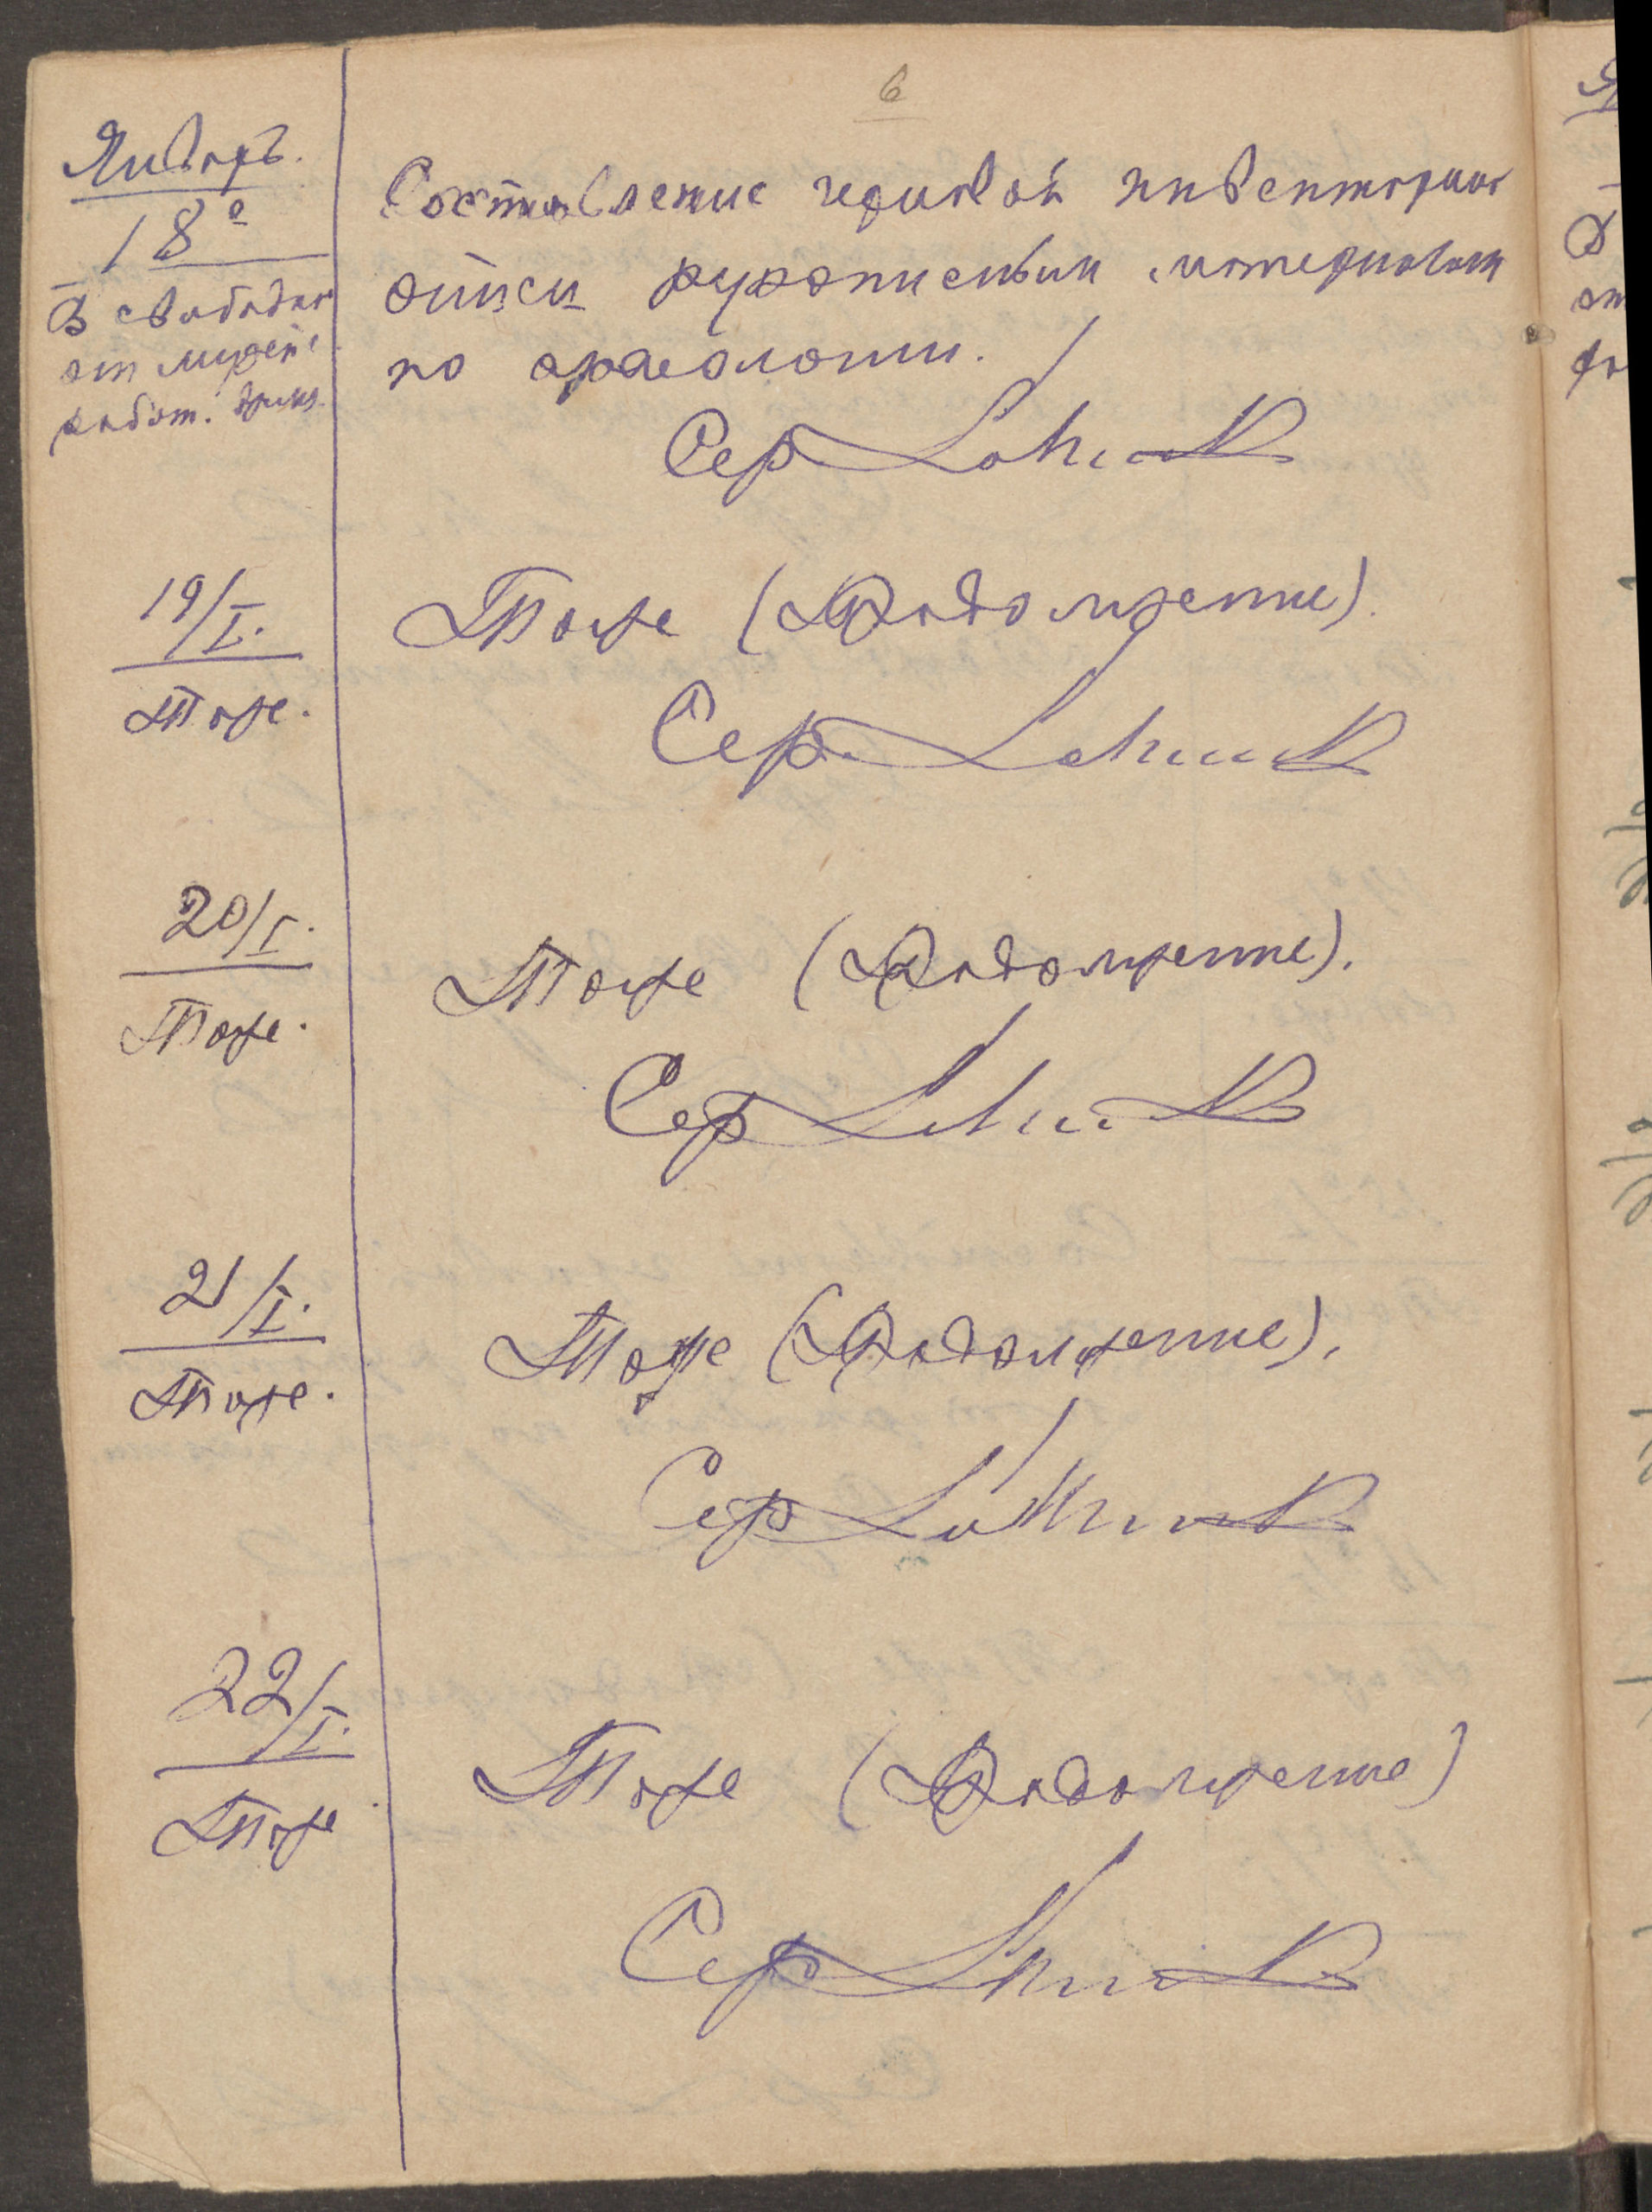 6
Январь.
18е
В свободн
от музейн
работ. время.
Составление черновой инвентарной
описи рукописным материалам
по археологии.
Сер
19/I.
Тоже.
Тоже (Продолжение).
Сер.
20/I.
Тоже.
Тоже (Продолжение).
Сер
21/I.
Тоже.
Тоже (Продолжение).
Сер
22/I.
Тоже
Тоже (Продолжение)
Сер